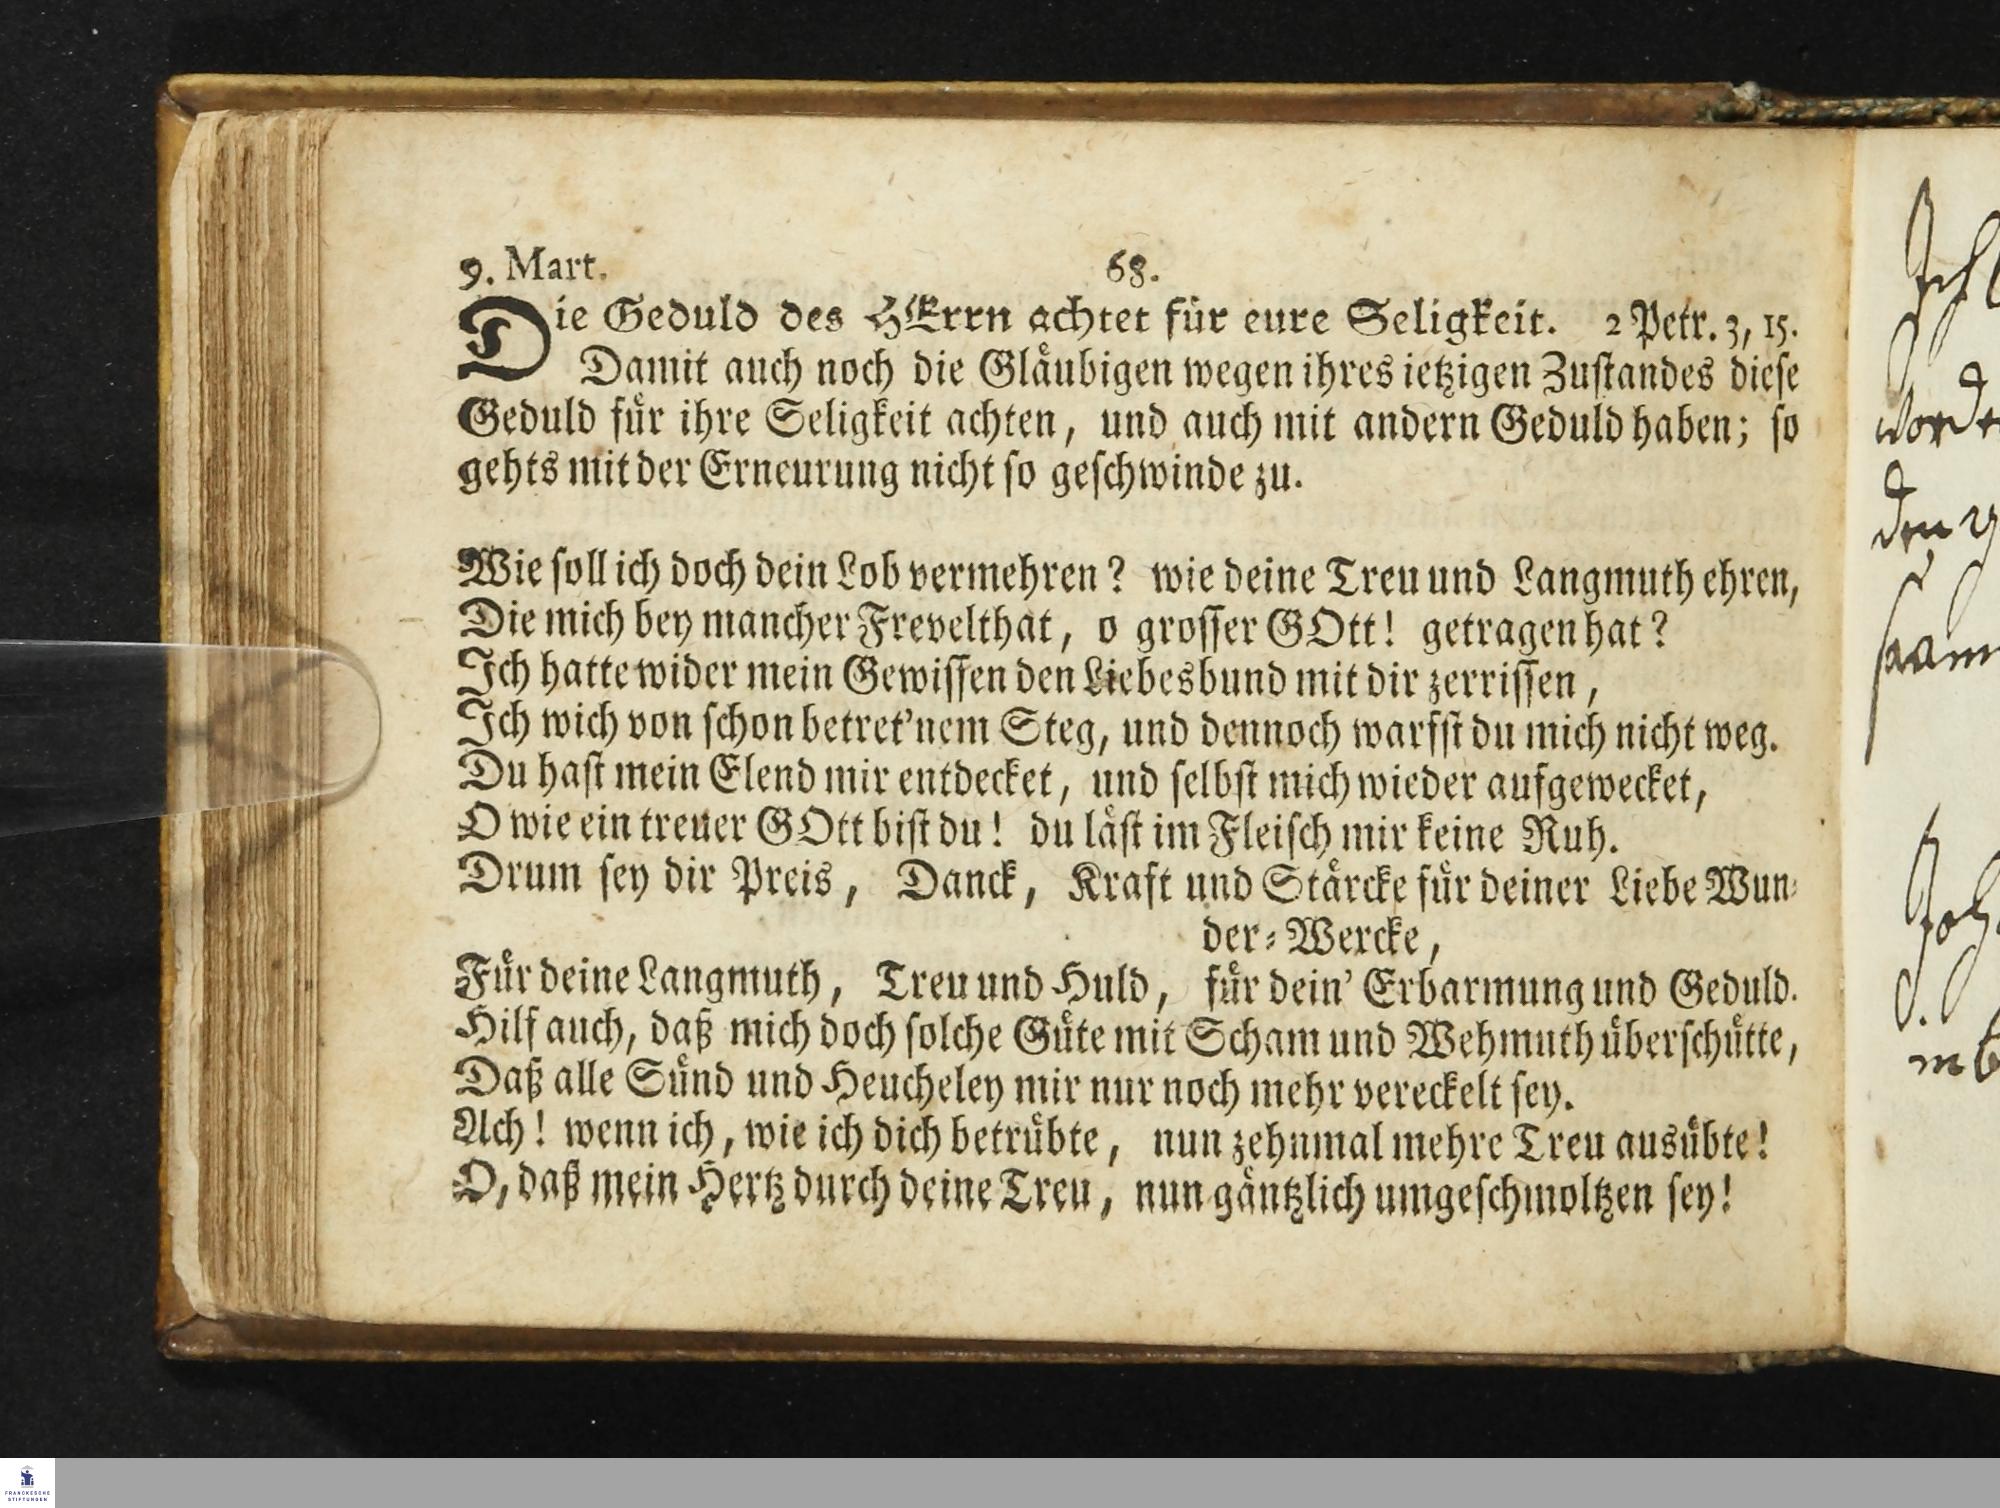 9. Mart. 68.
Die Geduld des HErrn achtet für eure Seligkeit. 2 Petr. 3, 15.
Damit auch noch die Gläubigen wegen ihres ietzigen Zustandes diese
Geduld für ihre Seligkeit achten, und auch mit andern Geduld haben; so
gehts mit der Erneurung nicht so geschwinde zu.
Wie soll ich doch dein Lob vermehren? wie deine Treu und Langmuth ehren,
Die mich bey mancher Frevelthat, o grosser GOtt! getragen hat?
Ich hatte wider mein Gewissen den Liebesbund mit dir zerrissen,
Ich wich von schon betret'nem Steg, und dennoch warfst du mich nicht weg.
Du hast mein Elend mir entdecket, und selbst mich wieder aufgewecket,
O wie ein treuer GOtt bist du! du läst im Fleisch mir keine Ruh.
Drum sey dir Preis, Danck, Kraft und Stärcke für deiner Liebe Wun-
der-Wercke,
Für deine Langmuth, Treu und Huld, für dein' Erbarmung und Geduld.
Hilf auch, daß mich doch solche Güte mit Scham und Wehmuth überschütte,
Daß alle Sünd und Heucheley mir nur noch mehr vereckelt sey.
Ach! wenn ich, wie ich dich betrübte, nun zehnmal mehre Treu ausübte!
O, daß mein Hertz durch deine Treu, nun gäntzlich umgeschmoltzen sey!
FRANCKESCHE
STIFTUNGEN